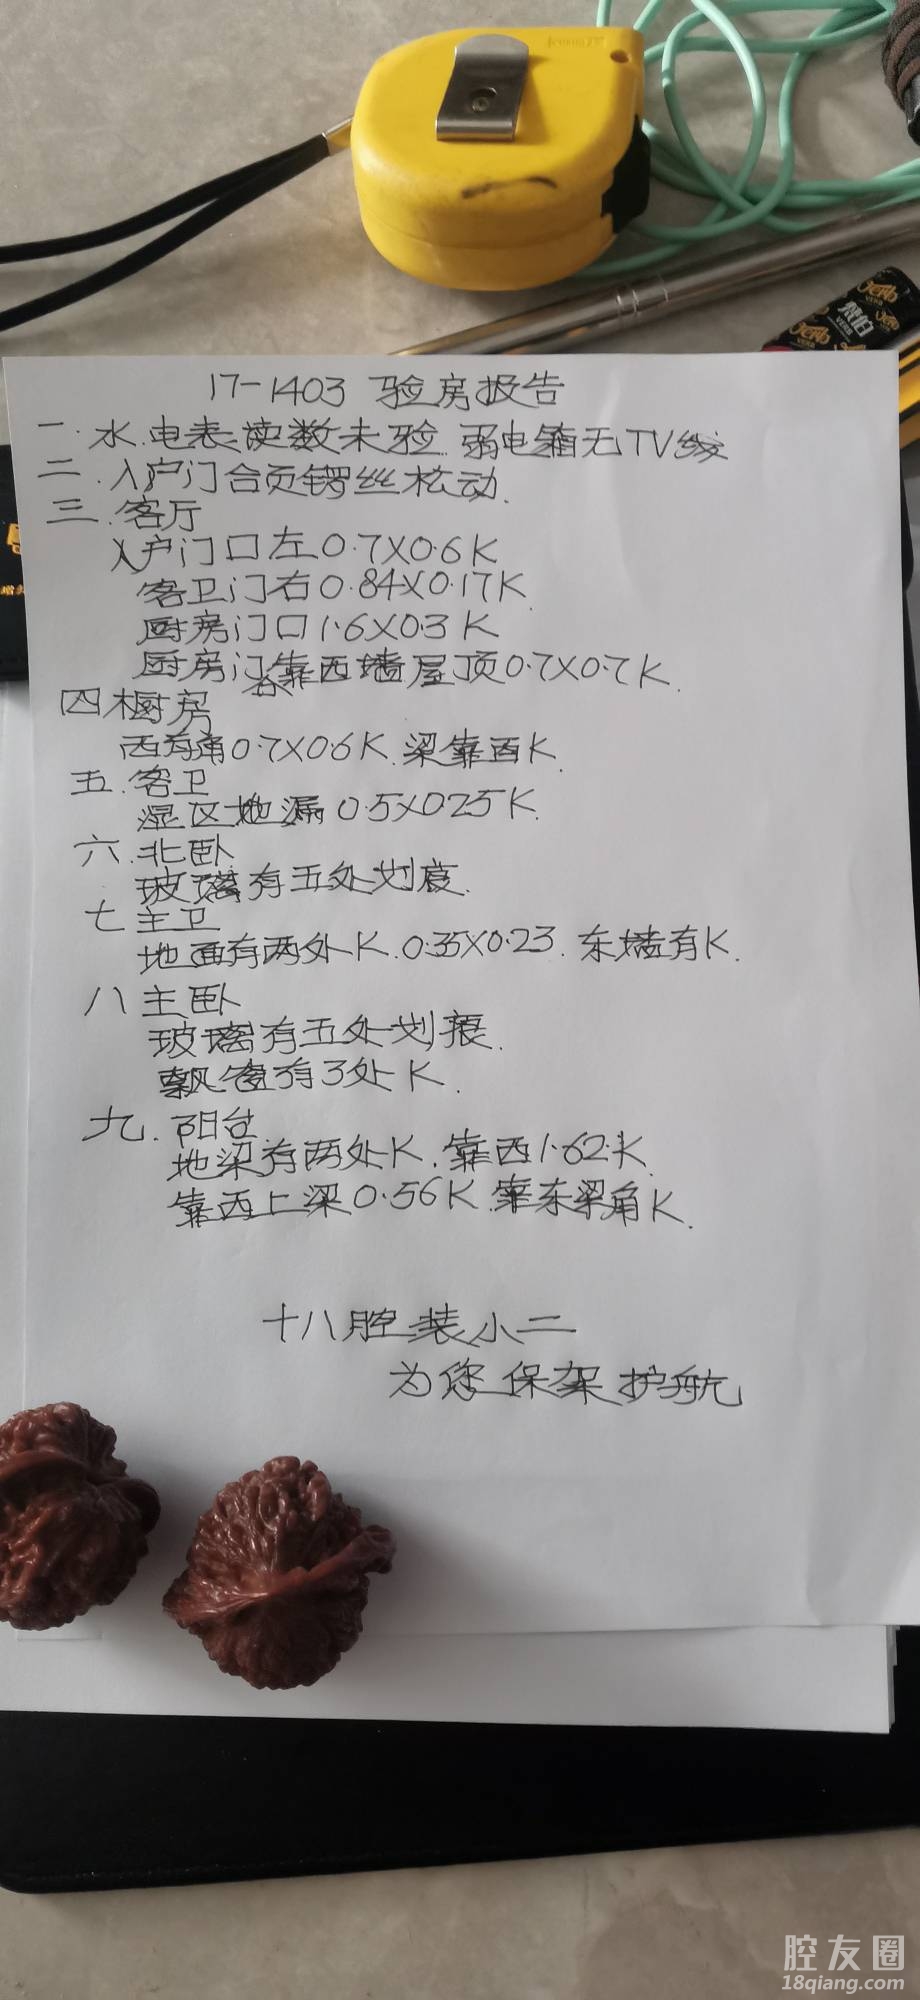 17-1403 验房报告
一.水.电表读数未验.弱电箱无TV线
二.入户门合页锣丝松动.
三.客厅
入户门口左0.7X0.6K
客卫门右0.84X0.17K.
厨房门口1.6X0.3K
厨房门靠西墙屋顶0.7X0.7K.
四 橱房
西角0.7X0.6K.梁靠西K.
五.客卫
湿区地漏0.5X0.25K.
六.北卧
玻璃有五处划痕.
七 主卫
地面有两处K.0.35X0.23.东墙有K.
八 主卧
玻璃有五处划痕.
飘窗有3处K.
九.阳台
地梁有两处K.靠西1.62K.
靠西上梁0.56K.靠东梁角K.
十八腔装小二
为您保架护航
梵伯
VERB
VERB
腔友圈
18qiang.com